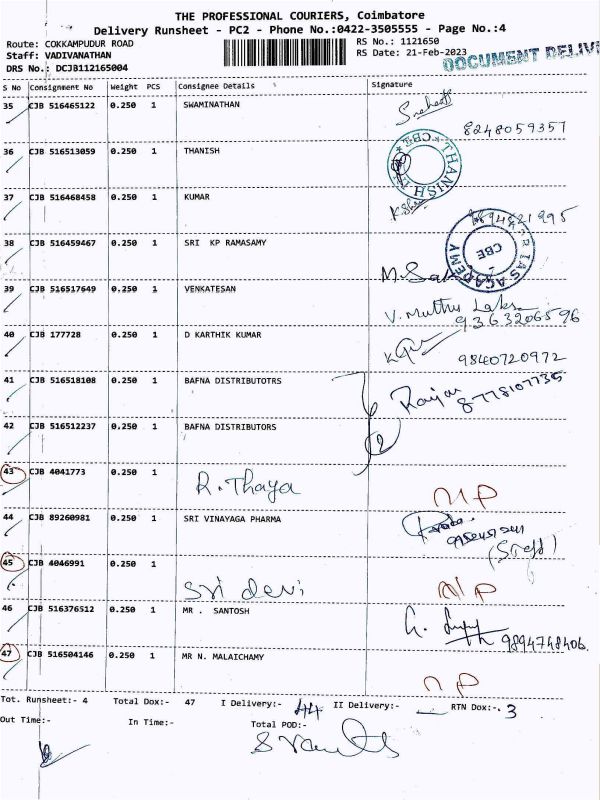 THE PROFESSIONAL COURIERS, Coimbatore
Delivery Runsheet - PC2 - Phone No.:0422-3505555 - Page No.:4
Route: COKKAMPUDUR ROAD RS No.: 1121650
Staff: VADIVANATHAN RS Date: 21-Feb-2023
DOCUMENT DELIV
DRS No.: DCJB112165004
S No Consignment No Weight PCS Consignee Details Signature
35 CJB 516465122 0.250 1 SWAMINATHAN
8248059357
36 CJB 516513059 0.250 1 THANISH
THANISH CBE
37 CJB 516468458 0.250 1 KUMAR
9894821995
38 CJB 516459467 0.250 1 SRI KP RAMASAMY
IAS ACADEMY CBE
39 CJB 516517649 0.250 1 VENKATESAN
V. Muthu
9363206596
40 CJB 177728 0.250 1 D KARTHIK KUMAR
9840720972
41 CJB 516518108 0.250 1 BAFNA DISTRIBUTOTRS
8778107735
42 CJB 516512237 0.250 1 BAFNA DISTRIBUTORS
2
43 CJB 4041773 0.250 1
R. Thaya NP
44 CJB 89260981 0.250 1 SRI VINAYAGA PHARMA
(Staff)
45 CJB 4046991 0.250 1
Sri devi NP
46 CJB 516376512 0.250 1 MR . SANTOSH
9894748406.
47 CJB 516504146 0.250 1 MR N. MALAICHAMY
NP
Tot. Runsheet:- 4 Total Dox:- 47 I Delivery:- 44 II Delivery:- RTN Dox:- 3
Out Time:- In Time:- Total POD:-